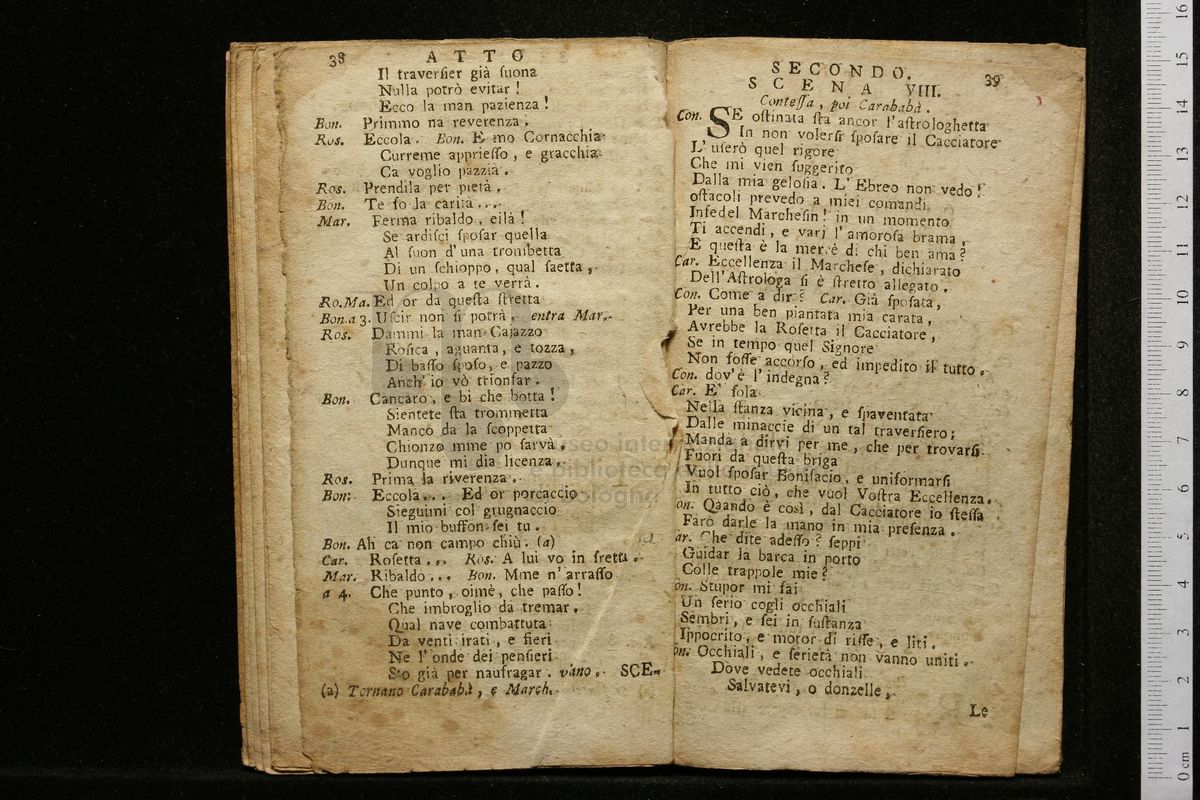 38 ATTO
Il traversier già suona
Nulla potrò evitar!
Ecco la man pazienza!
Bon. Primmo na reverenza.
Ros. Eccola. Bon. E mo Cornacchia
Curreme appriesso, e gracchia
Ca voglio pazzia.
Ros. Prendila per pietà.
Bon. Te fo la carità...
Mar. Ferma ribaldo, eilà!
Se ardisci sposar quella
Al suon d'una trombetta
Di un schioppo, qual saetta,
Un colpo a te verrà.
Ro.Ma. Ed or da questa stretta
Bon.a 3. Uscir non si potrà. entra Mar.
Ros. Dammi la man Cajazzo
Rosica, aguanta, e tozza,
Di basso sposo, e pazzo
Anch'io vò trionfar.
Bon. Cancaro, e bi che botta!
Sientete sta trommetta
Manco da la scoppetta
Chionzo mme po sarvà.
Dunque mi dia licenza.
Ros. Prima la riverenza.
Bon. Eccola... Ed or porcaccio
Sieguimi col grugnaccio
Il mio buffon sei tu.
Bon. Ah ca non campo chiù. (a)
Car. Rosetta... Ros. A lui vo in fretta.
Mar. Ribaldo... Bon. Mme n'arrasso
a 4. Che punto, oimè, che passo!
Che imbroglio da tremar.
Qual nave combattuta
Da venti irati, e fieri
Ne l'onde dei pensieri
Sto già per naufragar. vano. SCE-
(a) Tornano Carababà, e March.
SECONDO. 39
SCENA VIII.
Contessa, poi Carababà.
Con. SE ostinata sta ancor l'astrologhetta
In non volersi sposare il Cacciatore
L'userò quel rigore
Che mi vien suggerito
Dalla mia gelosia. L'Ebreo non vedo!
ostacoli prevedo a miei comandi
Infedel Marchesin! in un momento
Ti accendi, e varj l'amorosa brama,
E questa è la mercè di chi ben ama?
Car. Eccellenza il Marchese, dichiarato
Dell'Astrologa si è stretto allegato.
Con. Come a dir? Car. Già sposata,
Per una ben piantata mia carata,
Avrebbe la Rosetta il Cacciatore,
Se in tempo quel Signore
Non fosse accorso, ed impedito il tutto.
Con. dov'è l'indegna?
Car. E' sola
Nella stanza vicina, e spaventata
Dalle minaccie di un tal traversiero;
Manda a dirvi per me, che per trovarsi
Fuori da questa briga
Vuol sposar Bonifacio, e uniformarsi
In tutto ciò, che vuol Vostra Eccellenza.
on. Quando è così, dal Cacciatore io stessa
Farò darle la mano in mia presenza.
ar. Che dite adesso? seppi
Guidar la barca in porto
Colle trappole mie?
on. Stupor mi fai
Un serio cogli occhiali
Sembri, e sei in sustanza
Ippocrito, e motor di risse, e liti.
on. Occhiali, e serietà non vanno uniti.
Dove vedete occhiali
Salvatevi, o donzelle,
Le